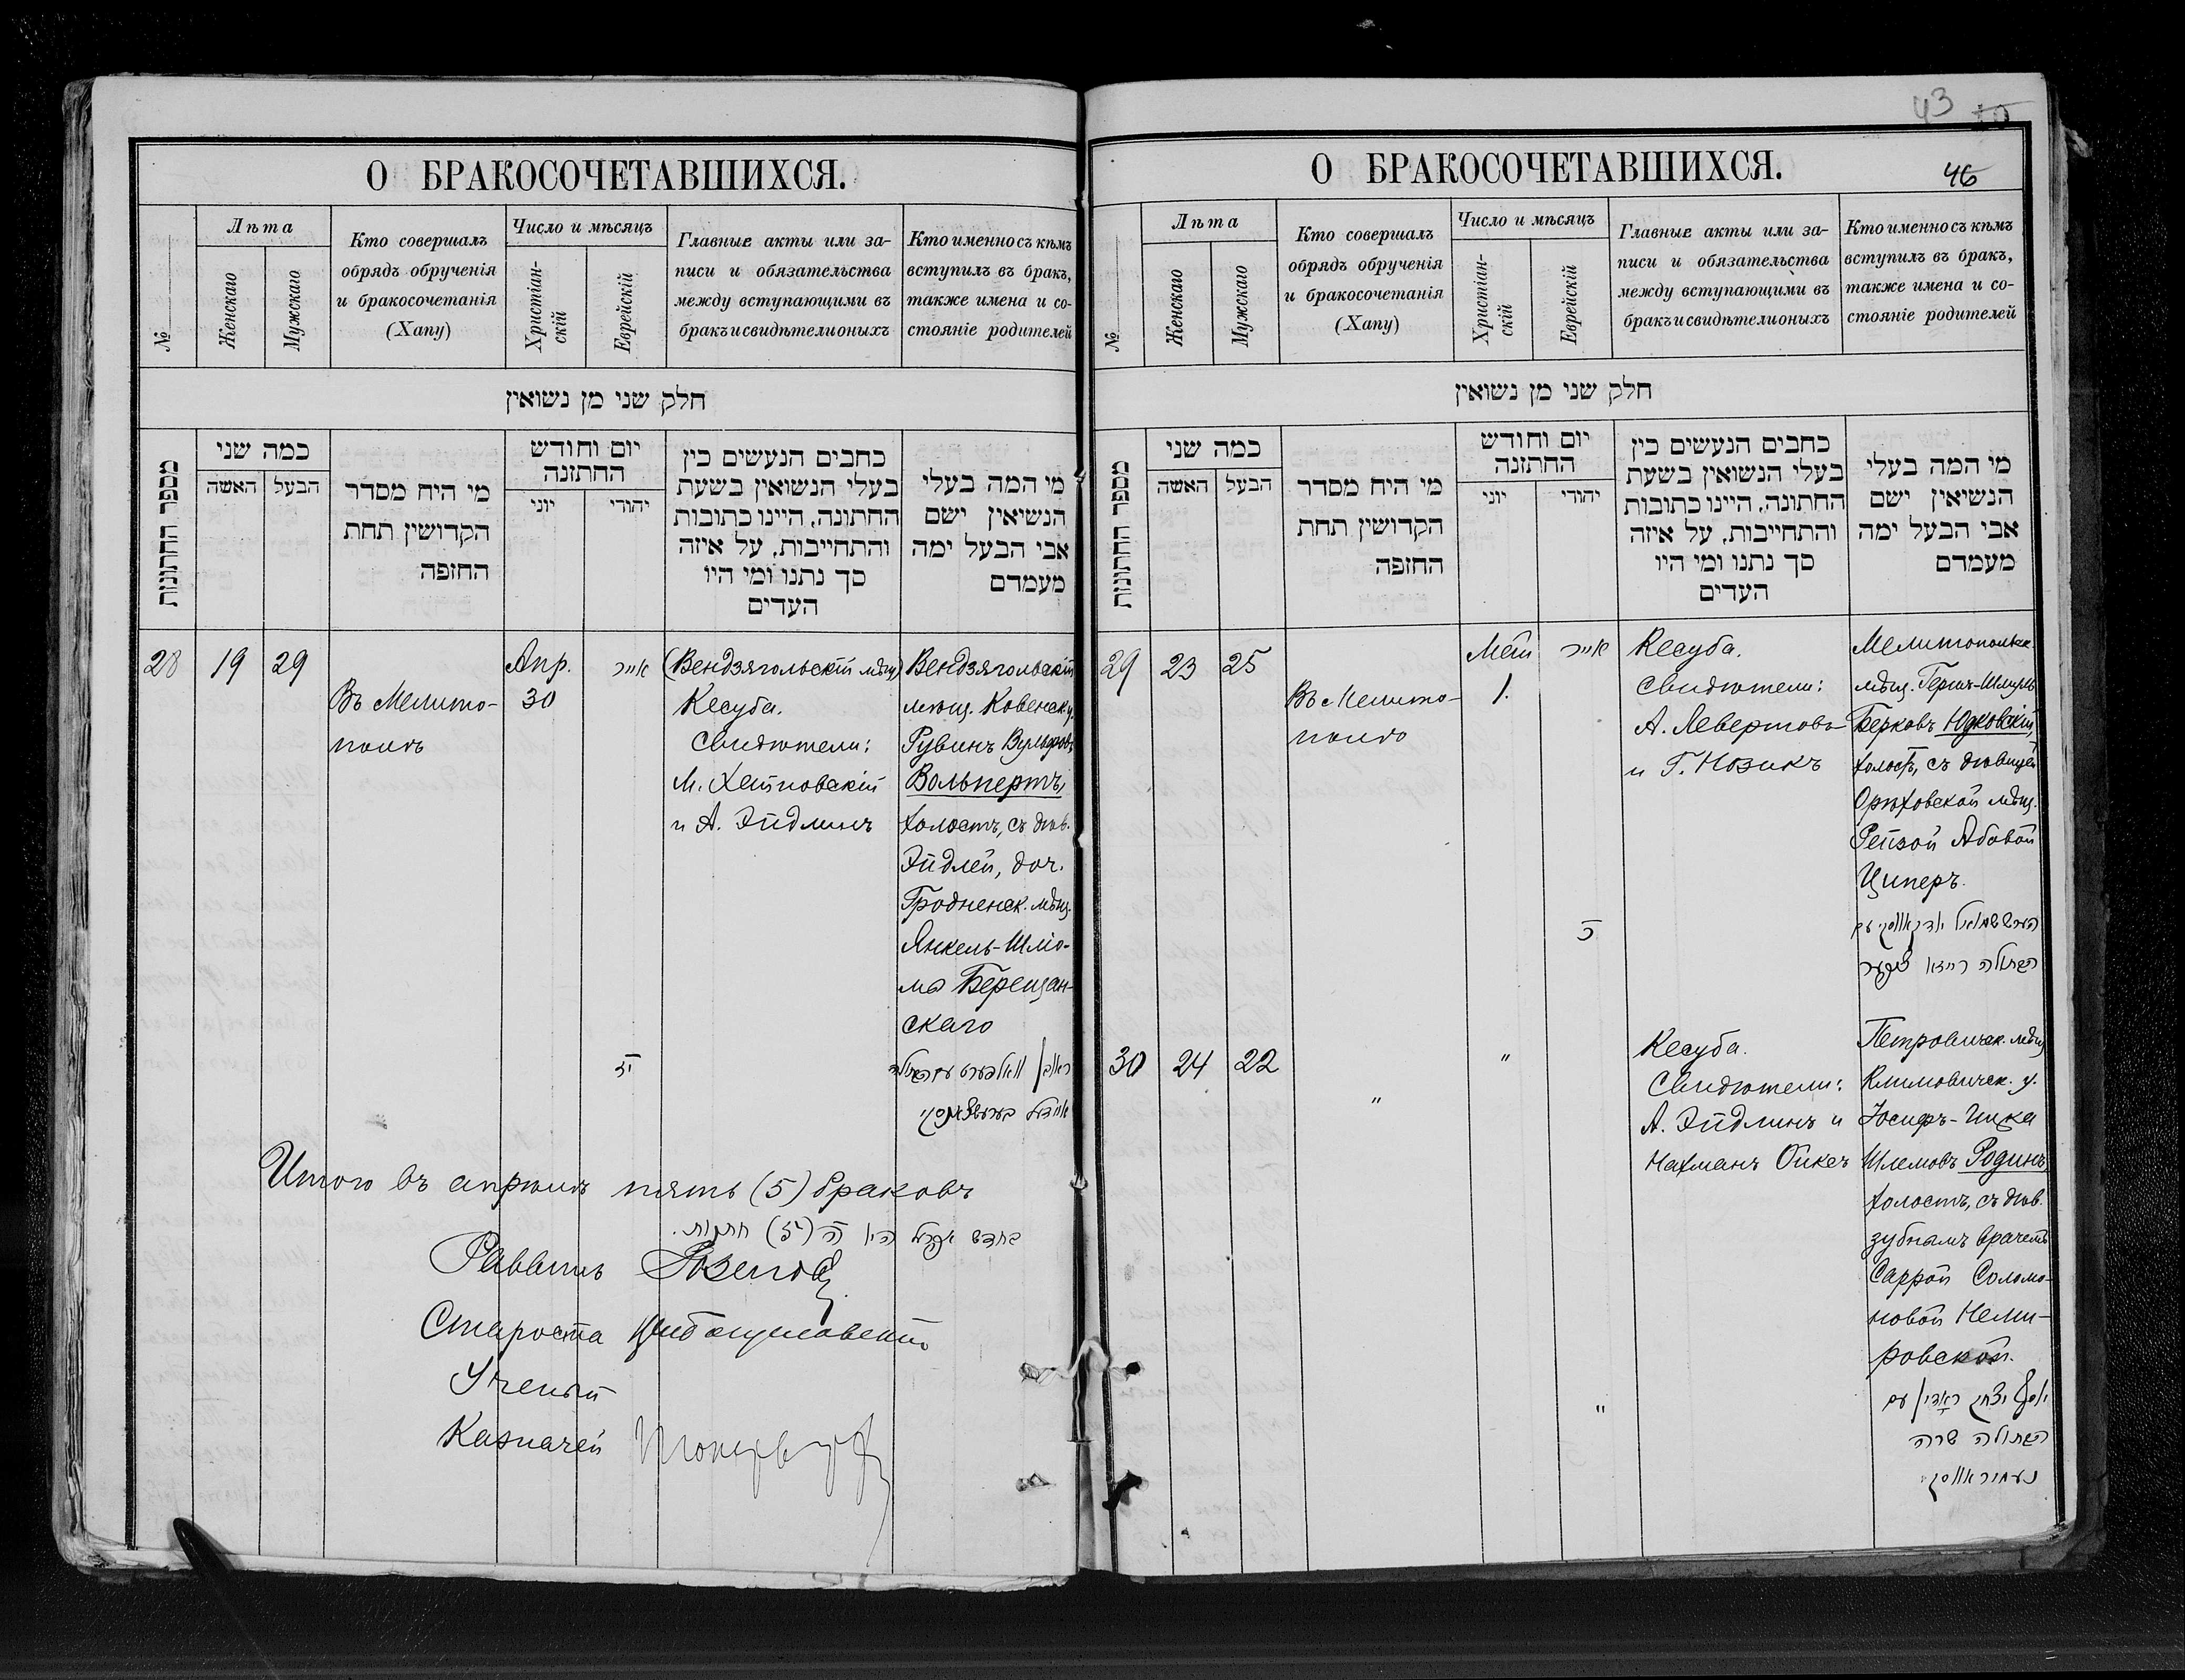 О БРАКОСОЧЕТАВШИХСЯ.
№
Лѣта
Женскаго
Мужскаго
Кто совершалъ
обрядъ обрученія
и бракосочетанія
(Хапу)
Число и мѣсяцъ
Христіан-
скій
Еврейскій
Главные акты или за-
писи и обязательства
между вступающими въ
бракъ и свидѣтели оныхъ
Кто именно съ кѣмъ
вступилъ въ бракъ,
также имена и со-
стояніе родителей
חלק שני מן נשואין
מספר החתונות
כמה שני
האשה
הבעל
מי היח מסדר
הקדושין תחת
החופה
יום וחודש
החתונה
יוני
יהודי
כתבים הנעשים בין
בעלי הנשואין בשעת
החתונה, היינו כתובות
והתחייבות, על איזה
סך נתנו ומי היו
העדים
מי המה בעלי
הנשיאין ישם
אבי הבעל ימה
מעמדם
28
19
29
Въ Мелито-
полѣ
Апр.
30
אייר
יז
(Вендзягольскій мѣщ)
Кесуба.
Свидѣтели:
М. Хайновскій
и А. Эйдлинъ
Вендзягольскій
мѣщ. Ковенск. у.
Рувинъ Вульфовъ
Вольпертъ,
холостъ, съ дѣв.
Эйдлей, доч.
Гродненск. мѣщ.
Янкель-Шлио-
ма Берещан-
скаго
ראובן וואלפערט עם הבתולה
איידל
Итого въ апрѣлѣ пять (5) браковъ
בחדש אפריל היו ה (5) חתונות.
Раввинъ
Староста
Ученый
Казначей
43
10
46
О БРАКОСОЧЕТАВШИХСЯ.
№
Лѣта
Женскаго
Мужскаго
Кто совершалъ
обрядъ обрученія
и бракосочетанія
(Хапу)
Число и мѣсяцъ
Христіан-
скій
Еврейскій
Главные акты или за-
писи и обязательства
между вступающими въ
бракъ и свидѣтели оныхъ
Кто именно съ кѣмъ
вступилъ въ бракъ,
также имена и со-
стояніе родителей
חלק שני מן נשואין
מספר החתונות
כמה שני
האשה
הבעל
מי היח מסדר
הקדושין תחת
החופה
יום וחודש
החתונה
יוני
יהודי
כתבים הנעשים בין
בעלי הנשואין בשעת
החתונה, היינו כתובות
והתחייבות, על איזה
סך נתנו ומי היו
העדים
מי המה בעלי
הנשיאין ישם
אבי הבעל ימה
מעמדם
29
23
25
Въ Мелито-
полѣ
Май
1.
אייר
Кесуба.
Свидѣтели:
А. Левертовъ
и Г. Нозикъ
Мелитопольск.
мѣщ. Герш-Шмуль
Берковъ Юдковскій,
холостъ, съ дѣвицей
Орѣховской мѣщ.
Рейзой Абовой
Циперъ.
הערש שמואל יודקאווסקי עם
הבתולה רייזא ציפער
30
24
22
"
"
"
Кесуба.
Свидѣтели:
А. Эйдлинъ и
Нахманъ Ойкеч
Петровичск. мѣщ.
Климовичск. у.
Іосифъ-Ицка
Шлемовъ Родинъ,
холостъ, съ дѣв.
зубнымъ врачемъ
Саррой Соломо-
новой Неми-
ровской.
יוסף יצחק ראָדין עם
הבתולה שרה
נעמיראווסקי